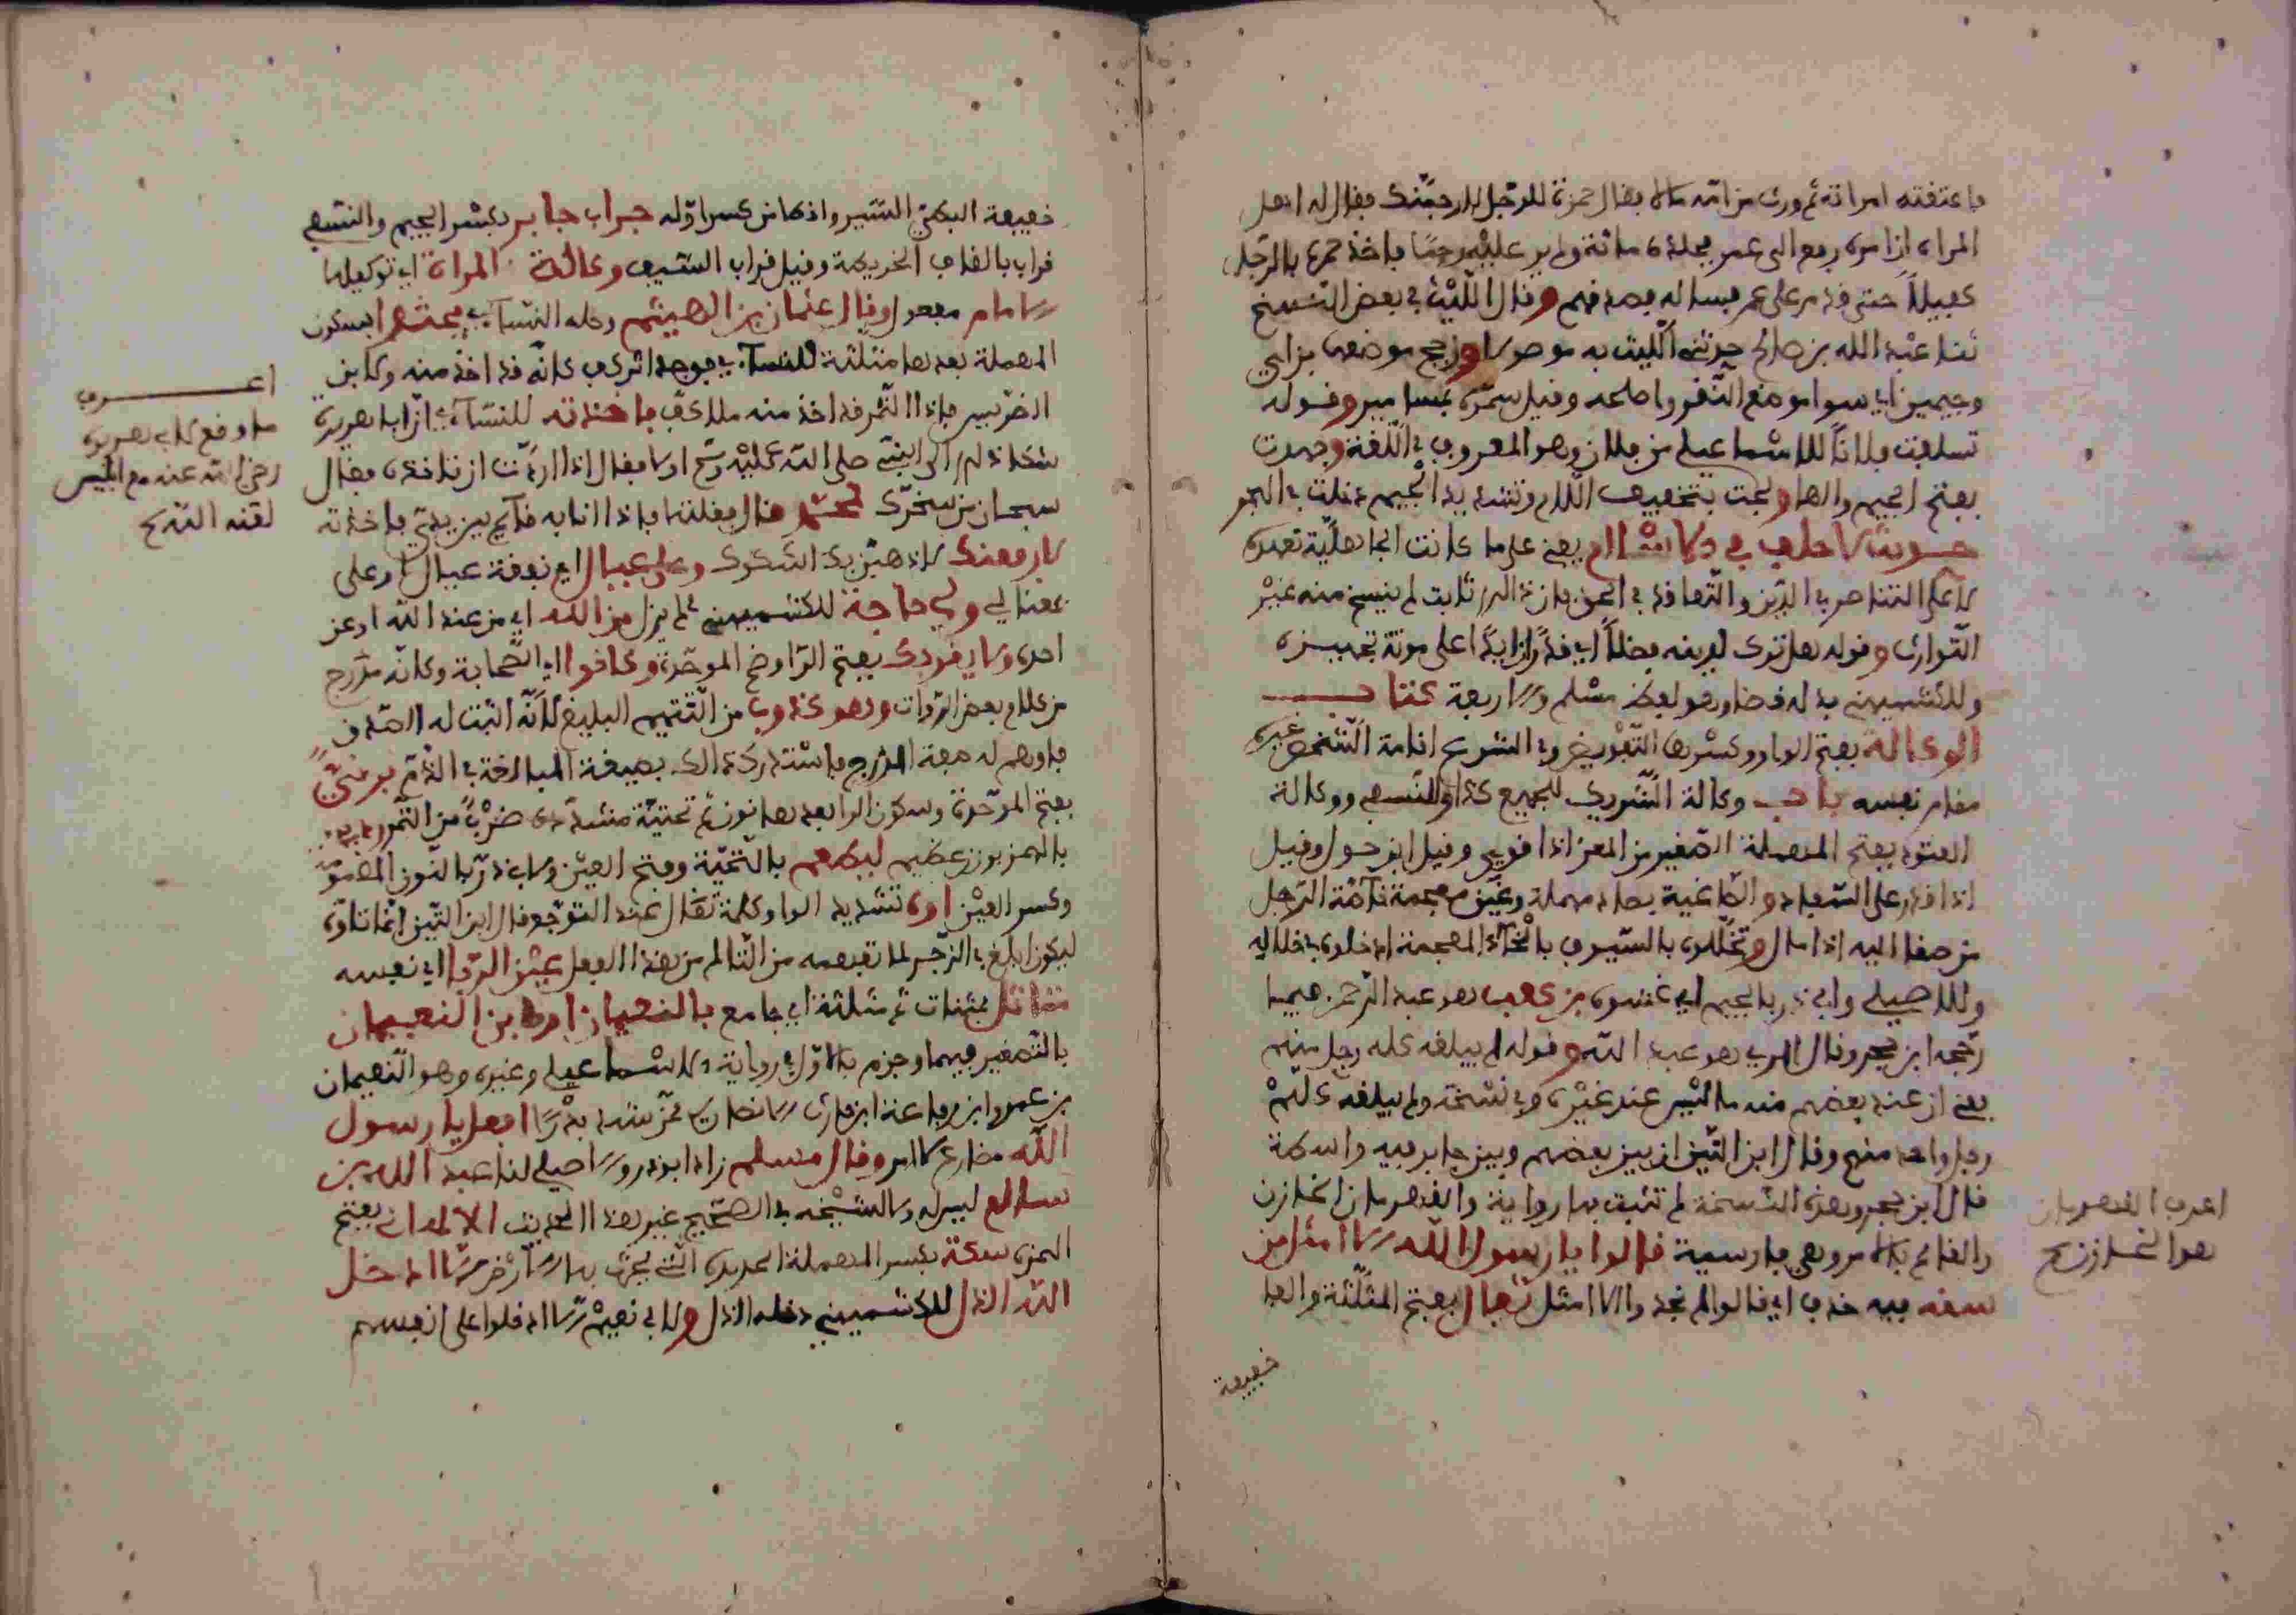 فاعتفته امراته ثم ورث من امه مالا فقال حمزة للرجل لارجمنك فقال له اهل
الماء ان امره رفع الى عمر فجلده مائة ولم ير عليه رجما فاخذ حمزة بالرجل
كفيلا حتى قدم على عمر فساله فصدقهم وقال الليث في بعض النسخ
ثنا عبد الله بن صالح حدثني الليث به موصولا وزجج موضعها بزاي
وجيمين اي سوا موضع النقر واصلحه وقيل سمره بمسامير وقوله
تسلفت فلانا للاسماعيلي من فلان وهو المعروف في اللغة وجهدت
بفتح الجيم والها ولجت بتخفيف اللام وتشديد الجيم دخلت في البحر
لا حلف في الاسلام يعني على ما كانت الجاهلية تعده
لا على التناصر في الدين والتعاقد في الحق فان ذلك ثابت لم ينسخ منه غير
التوارث وقوله هل ترك لدينه فضلا اي قدرا زايدا على مونة تجهيزه
وللكشميهني بدله قضا وهو لفظ مسلم والاربعة كتاب
الوكالة بفتح الواو وكسرها التفويض وفي الشرع اقامة الشخص غيره
مقام نفسه باب وكالة الشريك للجميع كذا وللنسفي ووكالة
العتود بفتح المهملة الصغير من المعز اذا قوي وقيل ابن حول وقيل
اذا قدر على السفاد والصاغية بصاد مهملة وغين معجمة خاصة الرجل
من صغا اليه اذا مال وتخللوه بالسيوف بالخاء المعجمة ادخلوه خلاله
وللاصيلي وابي ذر بالجيم اي غشوه بن كعب هو عبد الرحمن فيما
رجحه ابن حجر وقال المزي هو عبد الله وقوله لم يبلغه كله رجل منهم
يعني ان عند بعضهم منه ما ليس عند غيره وفي نسخة ولم يبلغه كلهم
رجل واحد منهم وقال ابن التين ان بين بعضهم وبين جابر فيه واسطة
قال ابن حجر وهذه النسخة لم تثبت بها رواية والقهرمان الخازن
والقائم بالامر وهي فارسية قالوا يا رسول الله الا امثل من
سنه فيه حذف اي قالوا لم نجد الا امثل ثفال بفتح المثلثة والفا
خفيفة
اعرف القهرمان
هو الخازن صح
خفيفة البطيء السير واذا كان كسر اوله جراب جابر بكسر الجيم وللنسفي
قراب بالقاف الخريطة وقيل قراب السيف وكالة المراة اي توكيلها
الامام مفعول وقال عثمان بن الهيثم وصله النسائي يحثو بسكون
المهملة بعدها مثلثة للنسائي فوجد اثر كف كانه قد اخذ منه ولابن
الضريس فاذا التمر قد اخذ منه ملا كف فاخذته للنسائي ان ابا هريرة
شكا ذلك الى النبي صلى الله عليه وسلم اولا فقال اذا اردت ان تاخذه فقل
سبحان من سخرك لمحمد قال فقلتها فاذا انا به قائم بين يدي فاخذته
لارفعنك لاذهبن بك اشكوك وعلي عيال اي نفقة عيال او على
بمعنى لي ولي حاجة للكشميهني ثم نزل من الله اي من عند الله او عن
امره ولا يقربك بفتح الراء وضم الموحدة وكانوا اي الصحابة وكانه مدرج
من كلام بعض الرواة وهو كذوب من التتميم البليغ لانه اثبت له الصدق
فاوهم له صفة المدح فاستدرك ذلك بصيغة المبالغة في الذم برني
بفتح الموحدة وسكون الرا بعدها نون ثم تحتية مشددة ضرب من التمر رديء
بالهمز بوزن عظيم ليطعم بالتحتية وفتح العين ولابي ذر بالنون المضمومة
وكسر العين اوه تشديد الواو كلمة تقال عند التوجع قال ابن التين انما تاوه
ليكون ابلغ في الزجر لما تفهمه من التالم من هذا الفعل عين الربا اي نفسه
متاثل بمثناة ثم مثلثة اي جامع بالنعيمان او ابن النعيمان
بالتصغير فيهما وجزم بالاول في رواية الاسماعيلي وغيره وهو النعيمان
بن عمرو بن رفاعة الانصاري ممن شهد بدرا افعل يا رسول
الله مضارع لا امر وقال مسلم زاد ابو ذر والاصيلي لنا عبد الله بن
سالم ليس له ولا لشيخه في الصحيح غير هذا الحديث الالهاني بفتح
الهمزة سكة بكسر المهملة الحديدة التي يحرث بها الارض الا ادخل
الله الذل للكشميهني دخله الذل ولابي نعيم الا ادخلوا على انفسهم
اعرف
ما وقع لابي هريرة
رضي الله عنه مع ابليس
لعنه الله صح